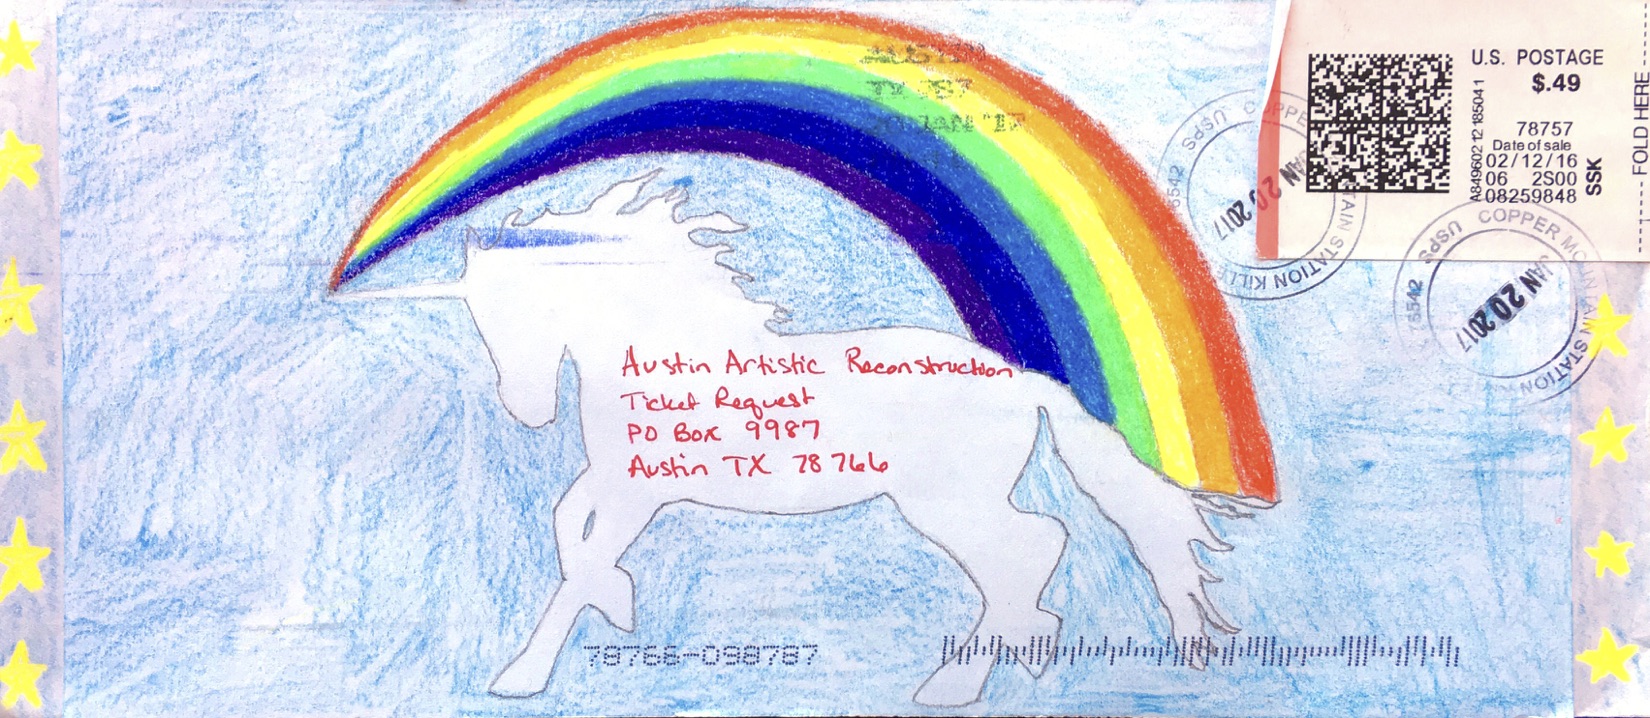 AUSTIN
TX 787
20 JAN '17
U.S. POSTAGE
$.49
78757
Date of sale
02/12/16
06 2S00
08259848
SSK
A849602 12 185041
FOLD HERE
COPPE TAIN STATION KILLE USPS 542
JAN 20 2017
COPPER MOUNTAIN STATION USPS 76542
JAN 20 2017
Austin Artistic Reconstruction
Ticket Request
PO Box 9987
Austin TX 78766
78766-098787